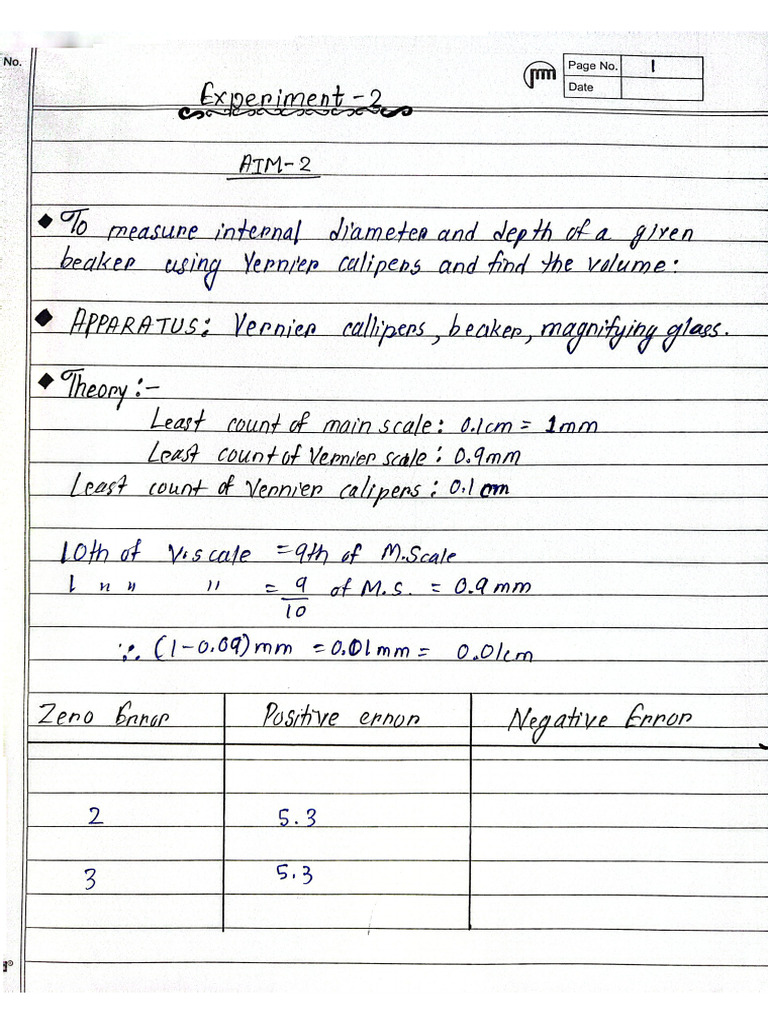 No.
jmm
Page No. 1
Date
Experiment-2
AIM-2
To measure internal diameter and depth of a given
beaker using Vernier calipers and find the volume:
APPARATUS: Vernier callipers, beaker, magnifying glass.
Theory:-
Least count of main scale: 0.1cm = 1mm
Least count of Vernier scale: 0.9mm
Least count of Vernier calipers: 0.1 cm
10th of V.scale = 9th of M.Scale
1 " " " = 9/10 of M.S. = 0.9mm
∵ (1-0.09)mm = 0.01mm = 0.01cm
Zero Error Positive error Negative Error
2 5.3
3 5.3